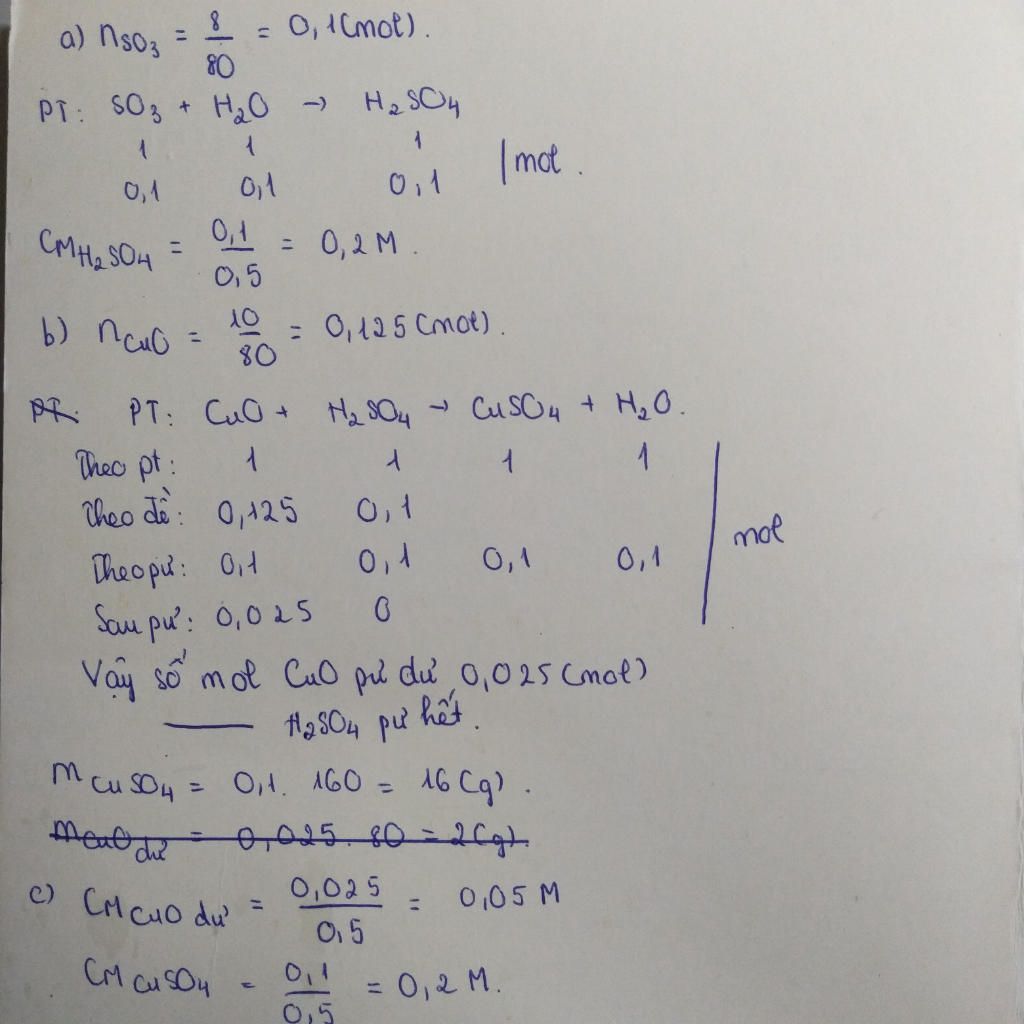 a) nSO3 = 8/80 = 0,1(mol).
PT: SO3 + H2O → H2SO4
1 1 1
0,1 0,1 0,1 | mol.
CMH2SO4 = 0,1/0,5 = 0,2 M.
b) nCuO = 10/80 = 0,125 (mol).
PT: PT: CuO + H2SO4 → CuSO4 + H2O.
Theo pt: 1 1 1 1
Theo đề: 0,125 0,1
Theo pư: 0,1 0,1 0,1 0,1 | mol
Sau pư: 0,025 0
Vậy số mol CuO pư dư 0,025 (mol)
—— H2SO4 pư hết.
mCuSO4 = 0,1. 160 = 16 (g).
mCuO dư = 0,025. 80 = 2(g).
c) CMCuO dư = 0,025/0,5 = 0,05 M
CMCuSO4 = 0,1/0,5 = 0,2 M.